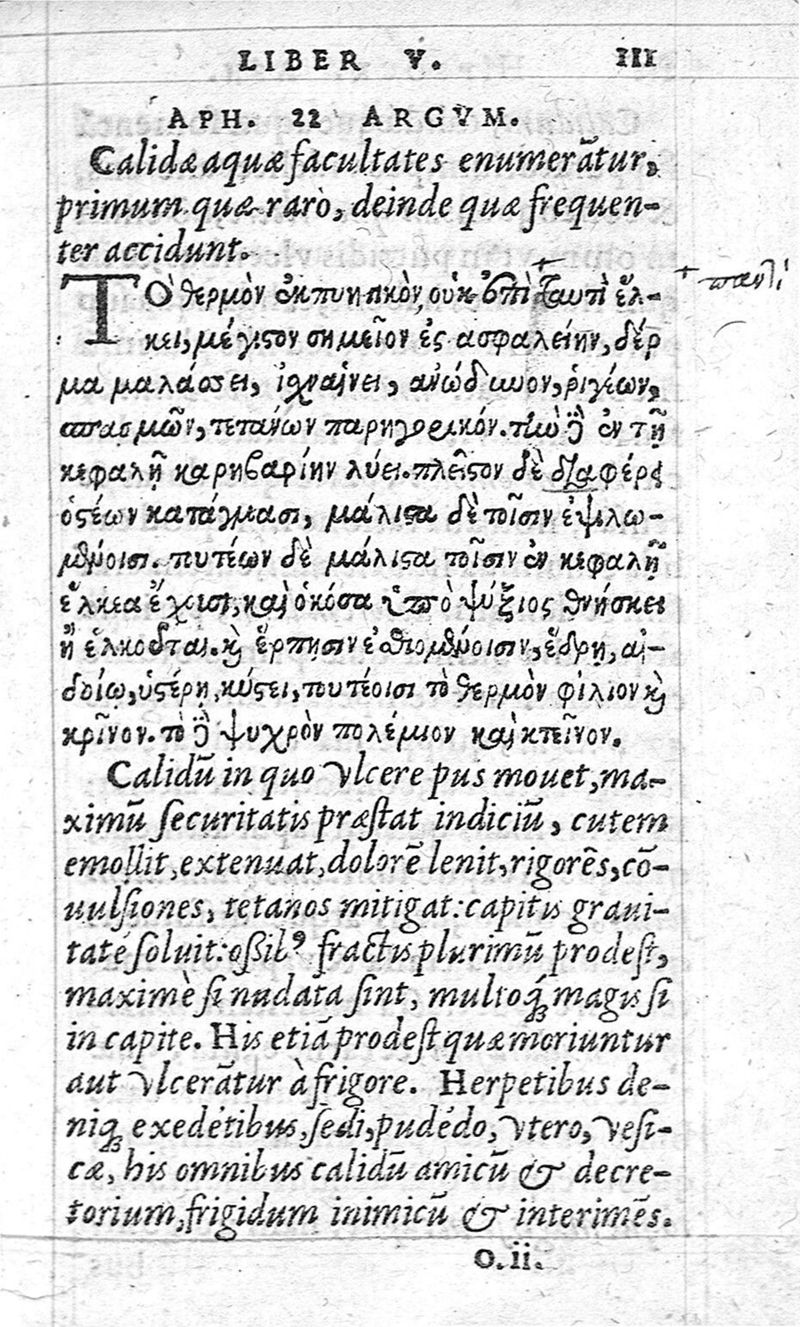 LIBER V. III
APH. 22 ARGVM.
Calidæ aquæ facultates enumerãtur,
primum quæ rarò, deinde quæ frequen-
ter accidunt.
ΤὸΘερμὸν ἐκπυητικὸν, οὐκ ἐπὶ ταυτὶ ἕλ-
κει, μέγιςον σημεῖον ἐς ασφαλείην, δέρ
μα μαλάσσει, ἰχναίνει, ανώδυνον, ῥιγέων,
σπασμῶν, τετάνων παρηγορικόν. τὴν δὲ ἐν τῇ
κεφαλῇ καρηβαρίην λύει. πλεῖςον δὲ διαφέρει
ὀςέων κατάγμασι, μάλιςα δὲ τοῖσιν ἐψιλω-
μένοισι. τουτέων δὲ μάλιςα τοῖσιν ἐν κεφαλῇ
ἕλκεα ἔχουσι, καὶ ὁκόσα ὑπὸ ψύξιος θνήσκει
ἢ ἑλκοῦται. καὶ ἕρπησιν ἐσθιομένοισιν, ἕδρῃ, αἰ-
δοίῳ, ὑςέρῃ, κύςει, τουτέοισι τὸ θερμὸν φίλιον καὶ
κρῖνον. τὸ δὲ ψυχρὸν πολέμιον καὶ κτεῖνον.
Calidũ in quo vlcere pus mouet, ma-
ximũ securitatis præstat indiciũ, cutem
emollit, extenuat, dolorẽ lenit, rigorẽs, cõ-
uulsiones, tetanos mitigat: capitis graui-
taté soluit: ossibꝰ fractis plurimũ prodest,
maximè si nudata sint, multoq́ꝫ magis si
in capite. His etiã prodest quæ moriuntur
aut vlcerãtur à frigore. Herpetibus de-
niqꝫ exedétibus, sedi, pudédo, vtero, vesi-
cæ, his omnibus calidũ amicũ & decre-
torium, frigidum inimicũ & interimẽs.
O.ii.